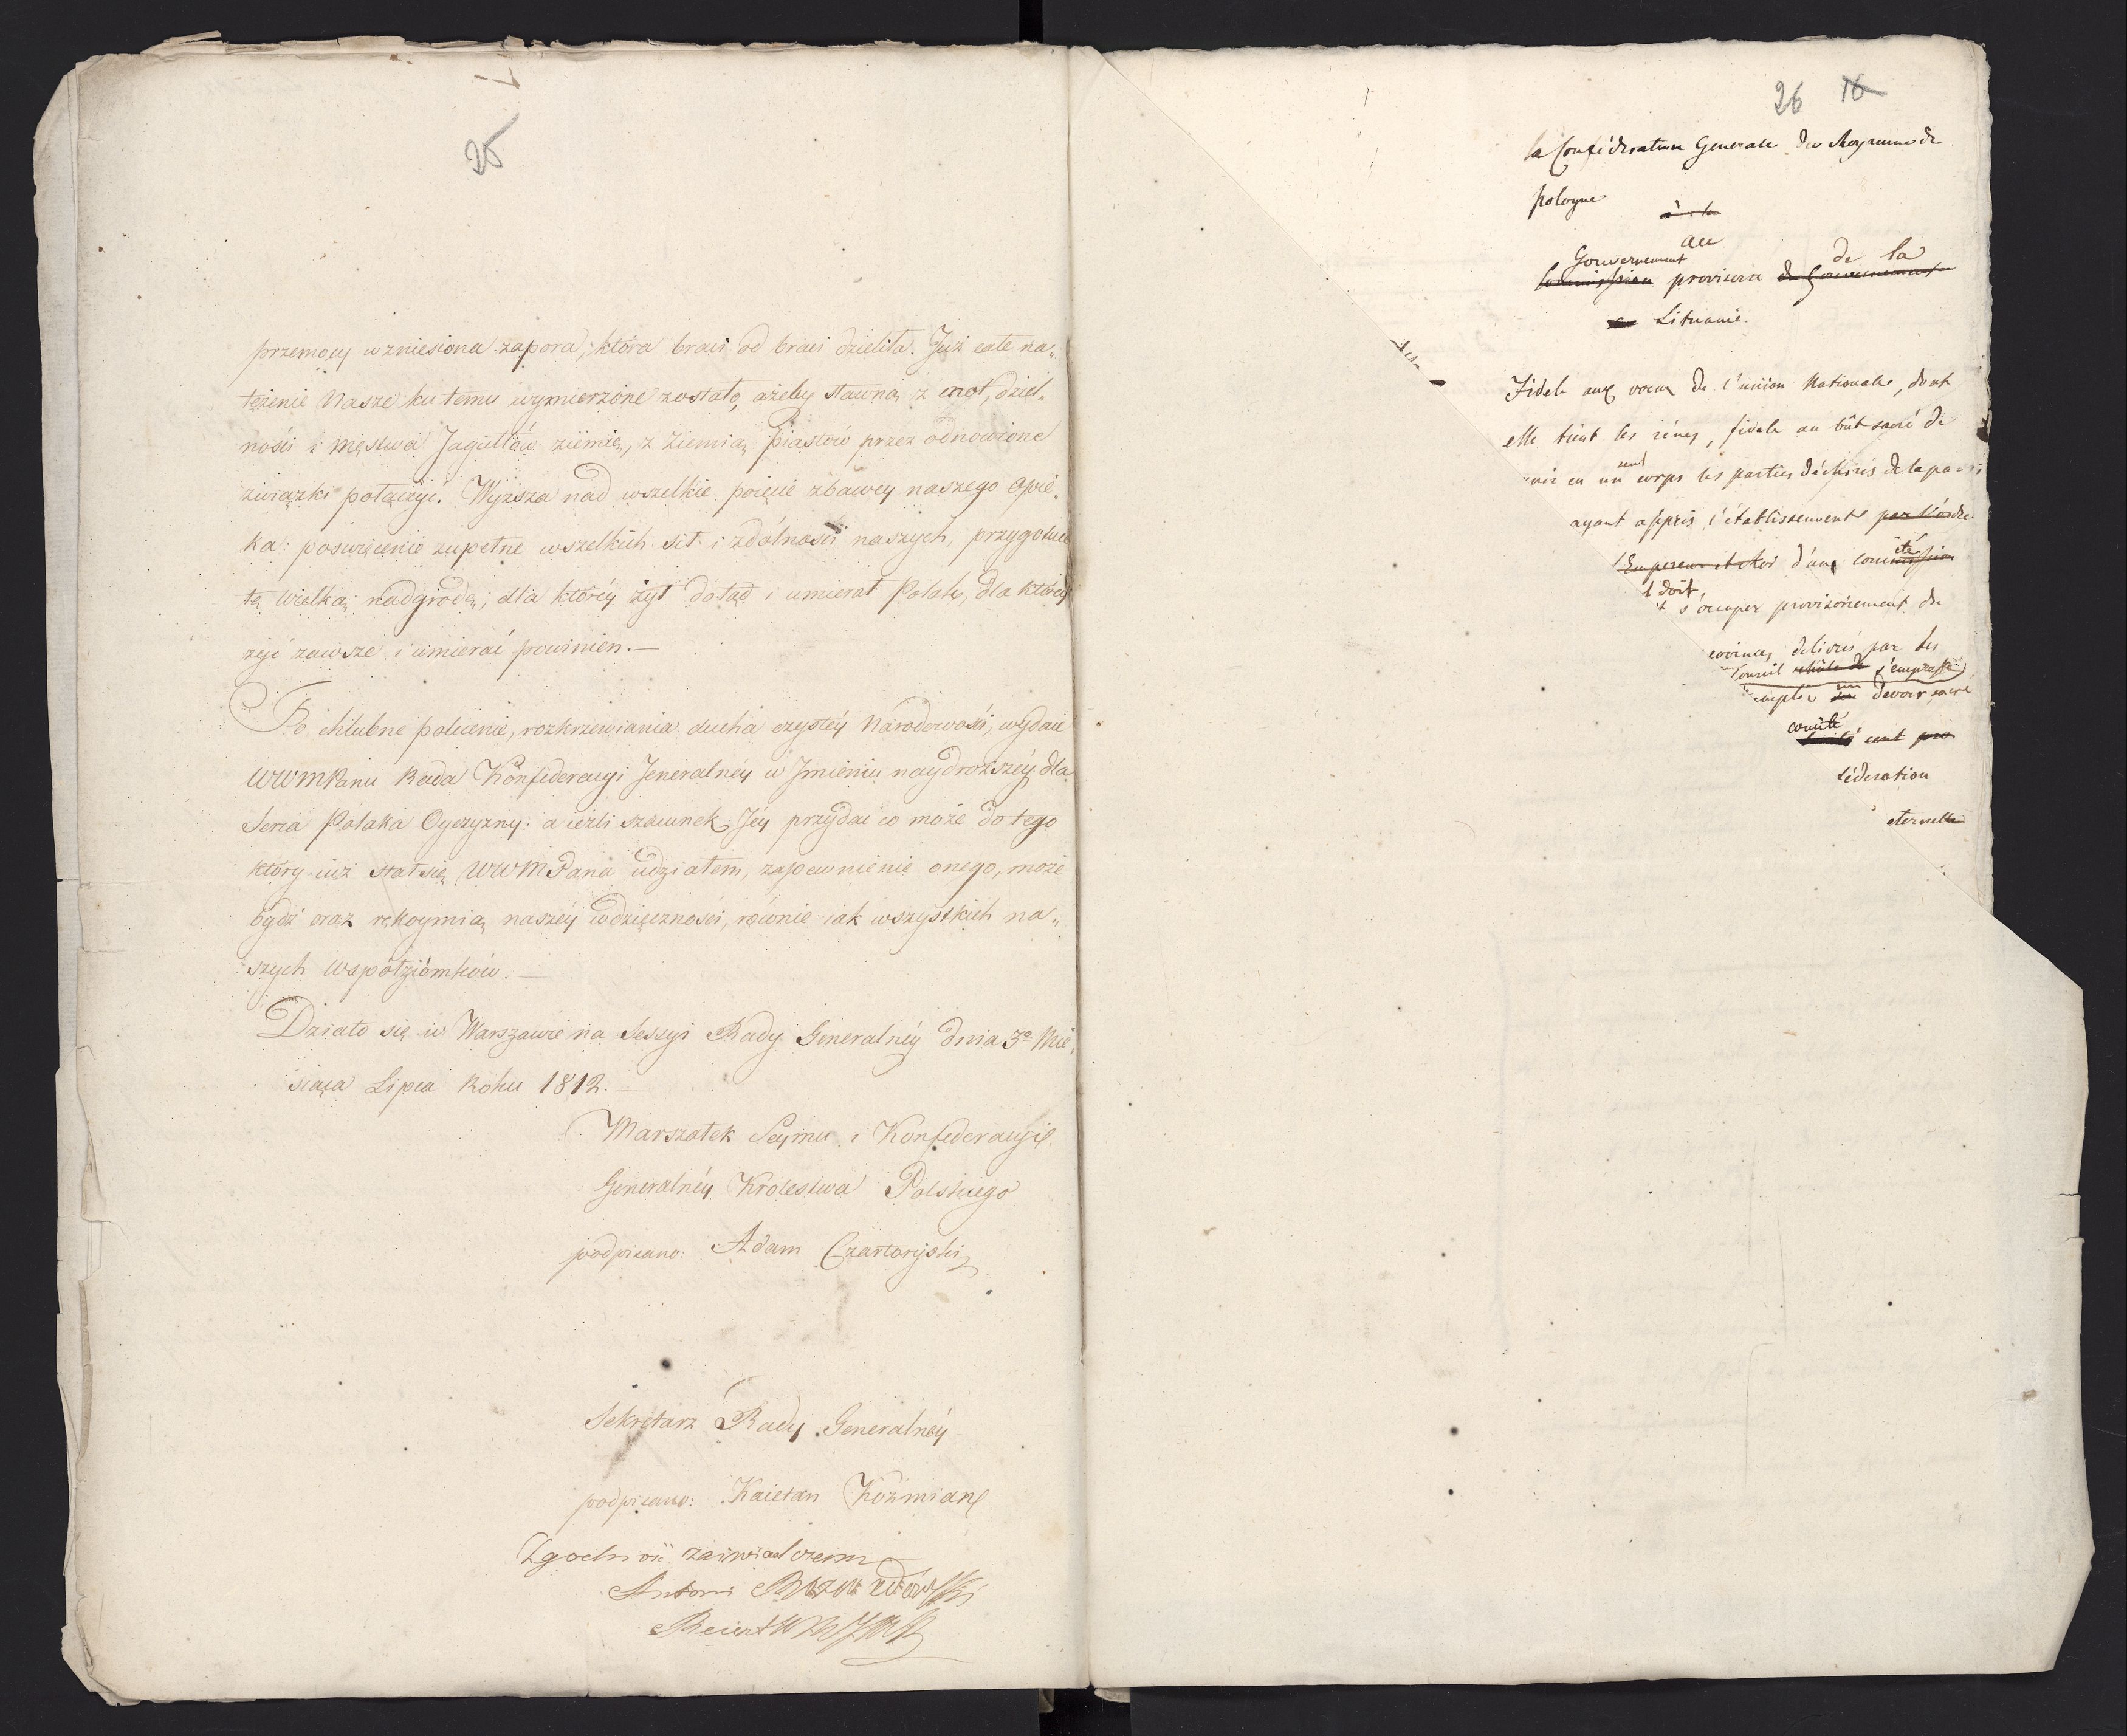 25
przemocy wzniesiona zapora, która braci od braci dzieliła. Już całe na„
tężenie Nasze ku temu wymierzone zostało, ażeby sławną z cnot, dziel„
ności i męstwa Jagiełłów ziemię, z Ziemią Piastów przez odnowione
związki połączyć. Wyższa nad wszelkie pojęcie zbawcy naszego Opie„
ka: poswięcenie zupełne wszelkich sił i zdolności naszych, przygotuie
tę wielką nadgrodę, dla któréy żył dotąd i umierał Polak, dla któréy
żyć zawsze i umierać powinien.—
To chlubne polecenie, rozkrzewiania ducha czystéy Narodowości, wydaie
WWMPanu Rada Konfederacyi Jeneralnéy w Jmieniu naydroższéy dla
Serca Polaka Oyczyzny: a ieżli szacunek Jéy przydać co może do tego
który iuż stał się WWMPana udziałem, zapewnienie onego, może
bydź oraz rękoymią naszéy wdzięczności, równie iak wszystkich na„
szych Współziomków.—
Działo się w Warszawie na Sessyi Rady Generalnéy dnia 3º Mie„
siąca Lipca Roku 1812.—
Marszałek Seymu i Konfederacyi
Generalnéy Królestwa Polskiego
podpisano: Adam Czartoryski
Sekretarz Rady Generalnéy
podpisano: Kaietan Koźmian
Zgodność zaświadczam
Antoni
26 16
la Confédération Generale du Royaume de
pologne
à la
au
Gouvernement de la
Commission provisoire du Gouvernement
Lituanie.
Fidele aux voeux de l'union Nationale, dont
elle tient les rênes, fidele au bût sacré de
seul
unir en un corps les parties déchirés de la pa
ayant appris l'établissement par l'ordre
été
l'Empereur et Roi d'une commission
doit
s'occuper provisoirement du
ovinces delivrés par les
Conseil s'empresse
emplir un devoir sacré
comité
cent pro
fédération
eternelle